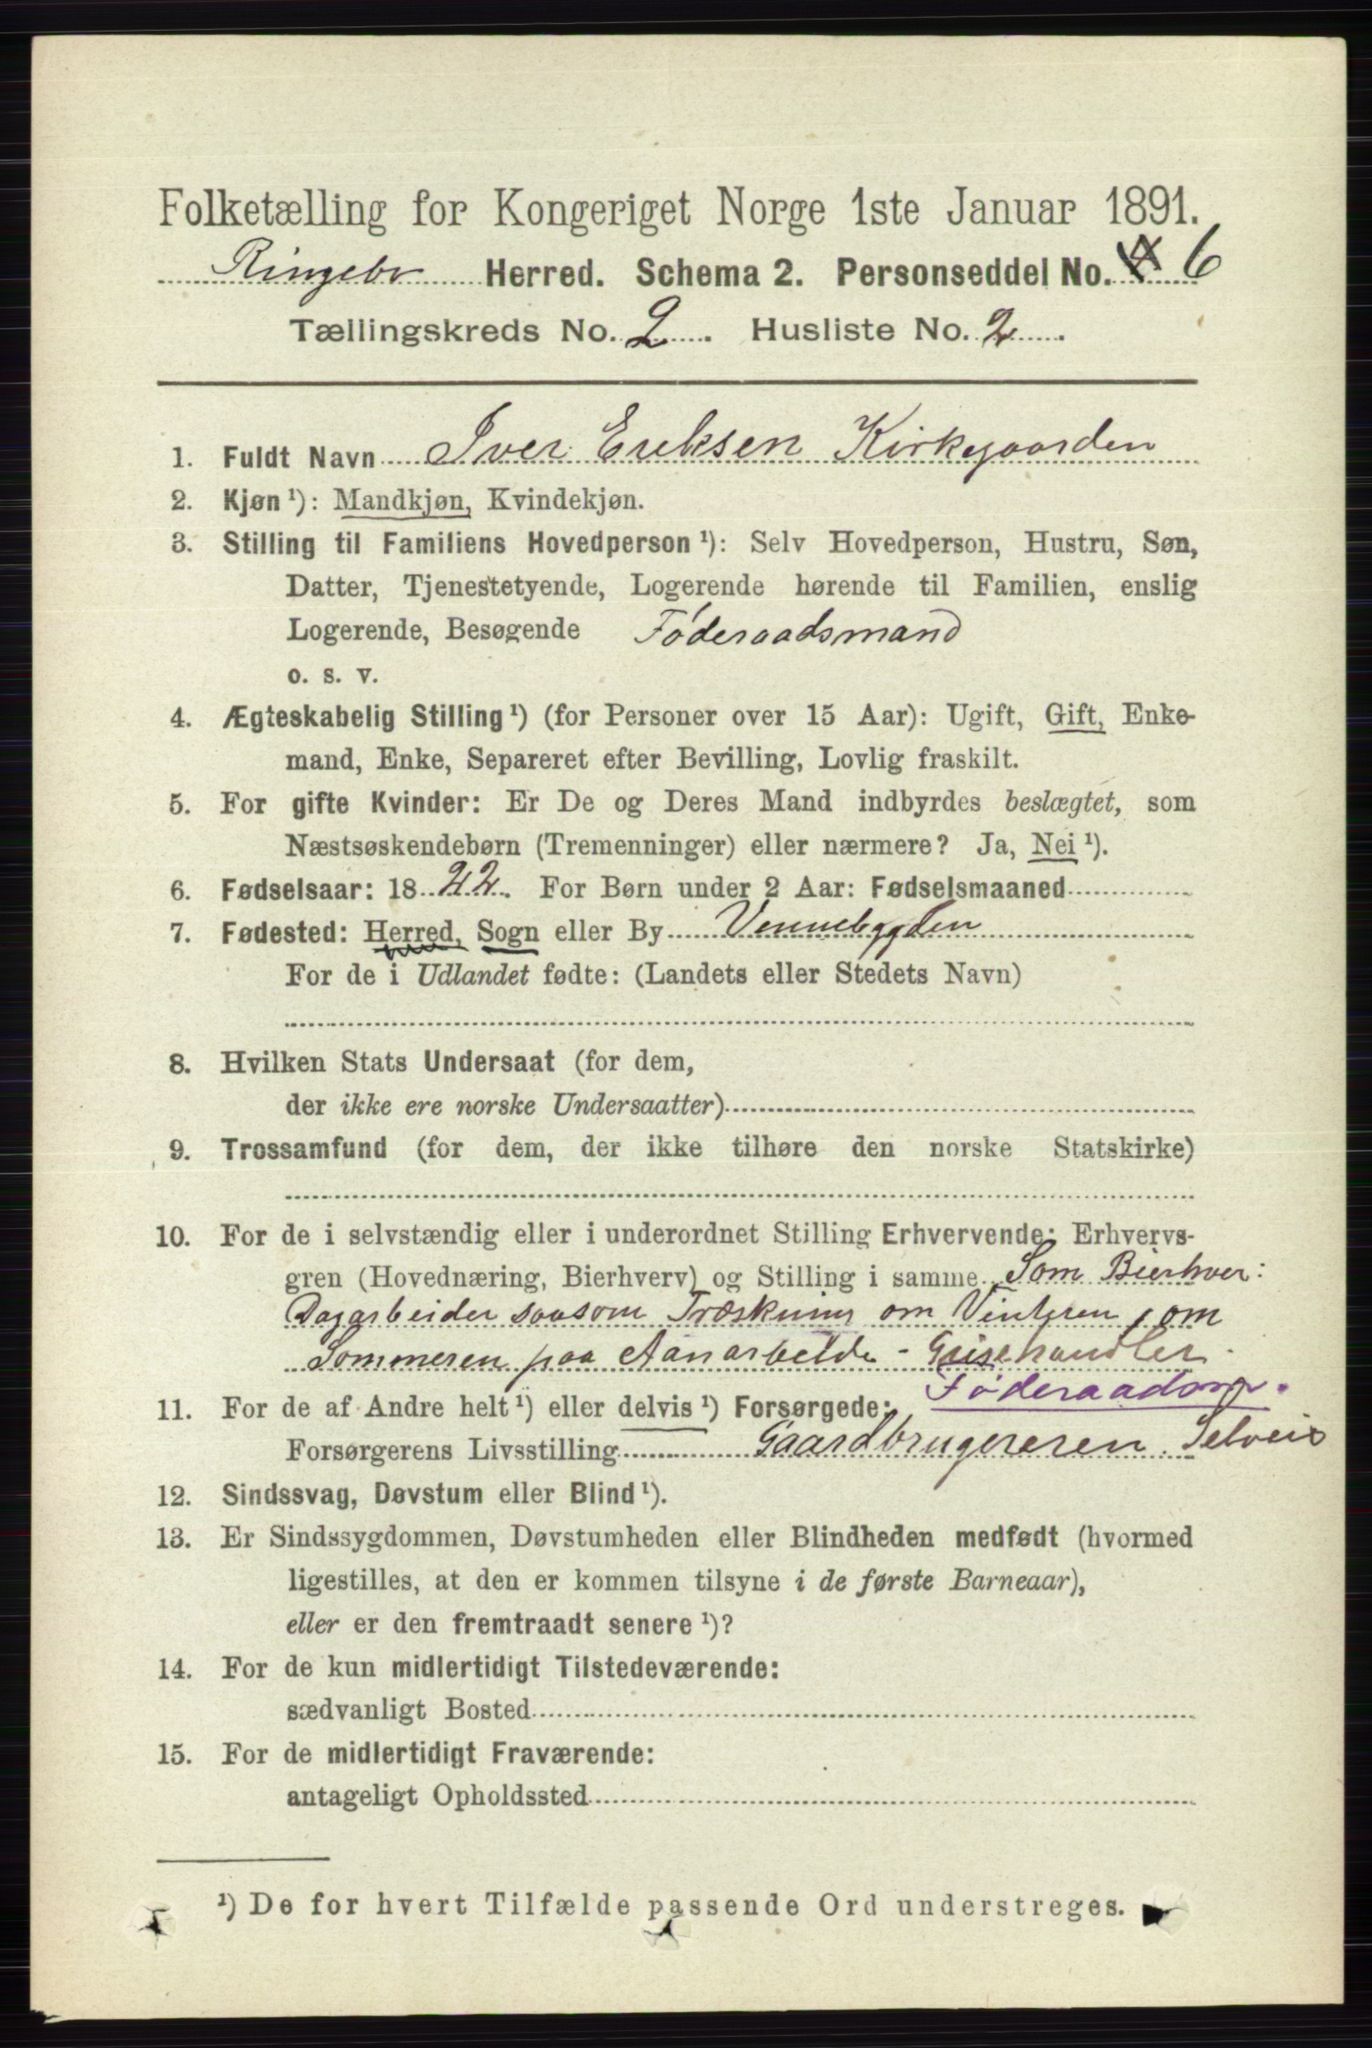 Folketælling for Kongeriget Norge 1ste Januar 1891.
Ringebu Herred. Schema 2. Personseddel No. 6
Tællingskreds No. 2. Husliste No. 2.
1. Fuldt Navn Iver Eriksen Kirkegaarden
2. Kjøn ¹): Mandkjøn, Kvindekjøn.
3. Stilling til Familiens Hovedperson ¹): Selv Hovedperson, Hustru, Søn,
Datter, Tjenestetyende, Logerende hørende til Familien, enslig
Logerende, Besøgende Føderaadsmand
o. s. v.
4. Ægteskabelig Stilling ¹) (for Personer over 15 Aar): Ugift, Gift, Enke-
mand, Enke, Separeret efter Bevilling, Lovlig fraskilt.
5. For gifte Kvinder: Er De og Deres Mand indbyrdes beslægtet, som
Næstsøskendebørn (Tremenninger) eller nærmere? Ja, Nei ¹).
6. Fødselsaar: 1822. For Børn under 2 Aar: Fødselsmaaned
7. Fødested: Herred, Sogn eller By Vennebygden
For de i Udlandet fødte: (Landets eller Stedets Navn)
8. Hvilken Stats Undersaat (for dem,
der ikke ere norske Undersaatter)
9. Trossamfund (for dem, der ikke tilhøre den norske Statskirke)
10. For de i selvstændig eller i underordnet Stilling Erhvervende: Erhvervs-
gren (Hovednæring, Bierhverv) og Stilling i samme Som Bierhver:
Dagarbeider saasom om Vinteren, om
Sommeren paa Aanarbeide - Grisehandler.
Føderaadsm.
11. For de af Andre helt ¹) eller delvis ¹) Forsørgede:
Forsørgerens Livsstilling Gaardbrugereren. Selveier
12. Sindssvag, Døvstum eller Blind ¹).
13. Er Sindssygdommen, Døvstumheden eller Blindheden medfødt (hvormed
ligestilles, at den er kommen tilsyne i de første Barneaar),
eller er den fremtraadt senere ¹)?
14. For de kun midlertidigt Tilstedeværende:
sædvanligt Bosted
15. For de midlertidigt Fraværende:
antageligt Opholdssted
¹) De for hvert Tilfælde passende Ord understreges.